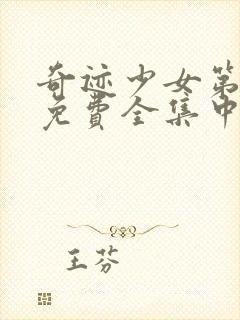 奇迹少女第
免費全集中
王芬